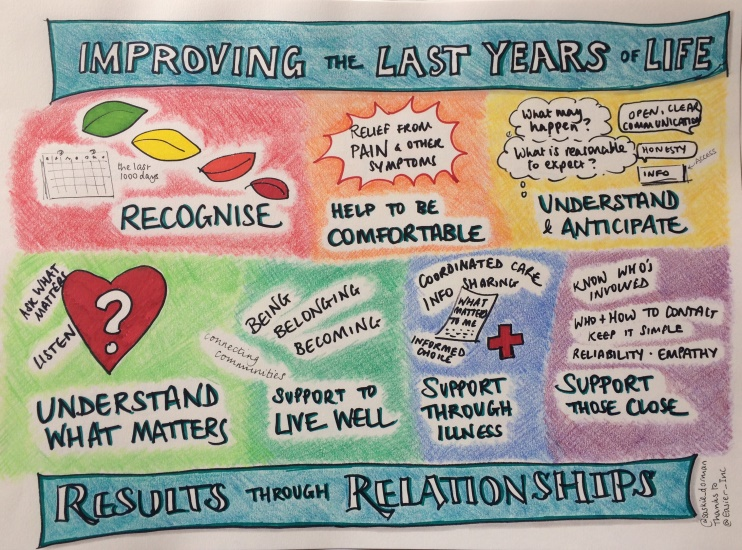 IMPROVING THE LAST YEARS OF LIFE
the last
1000 days
RECOGNISE
RELIEF FROM
PAIN & OTHER
SYMPTOMS
HELP TO BE
COMFORTABLE
What may
happen?
What is reasonable
to expect?
OPEN, CLEAR
COMMUNICATION
HONESTY
INFO
ACCESS
UNDERSTAND
& ANTICIPATE
ASK WHAT
MATTERS
LISTEN
?
UNDERSTAND
WHAT MATTERS
BEING
BELONGING
BECOMING
connecting
communities
SUPPORT TO
LIVE WELL
COORDINATED CARE
INFO SHARING
WHAT
MATTERS
TO ME
INFORMED
CHOICE
SUPPORT
THROUGH
ILLNESS
KNOW WHO'S
INVOLVED
WHO + HOW TO CONTACT
KEEP IT SIMPLE
RELIABILITY · EMPATHY
SUPPORT
THOSE CLOSE
RESULTS THROUGH RELATIONSHIPS
@saskie_dorman
Thanks to
@Easier_Inc